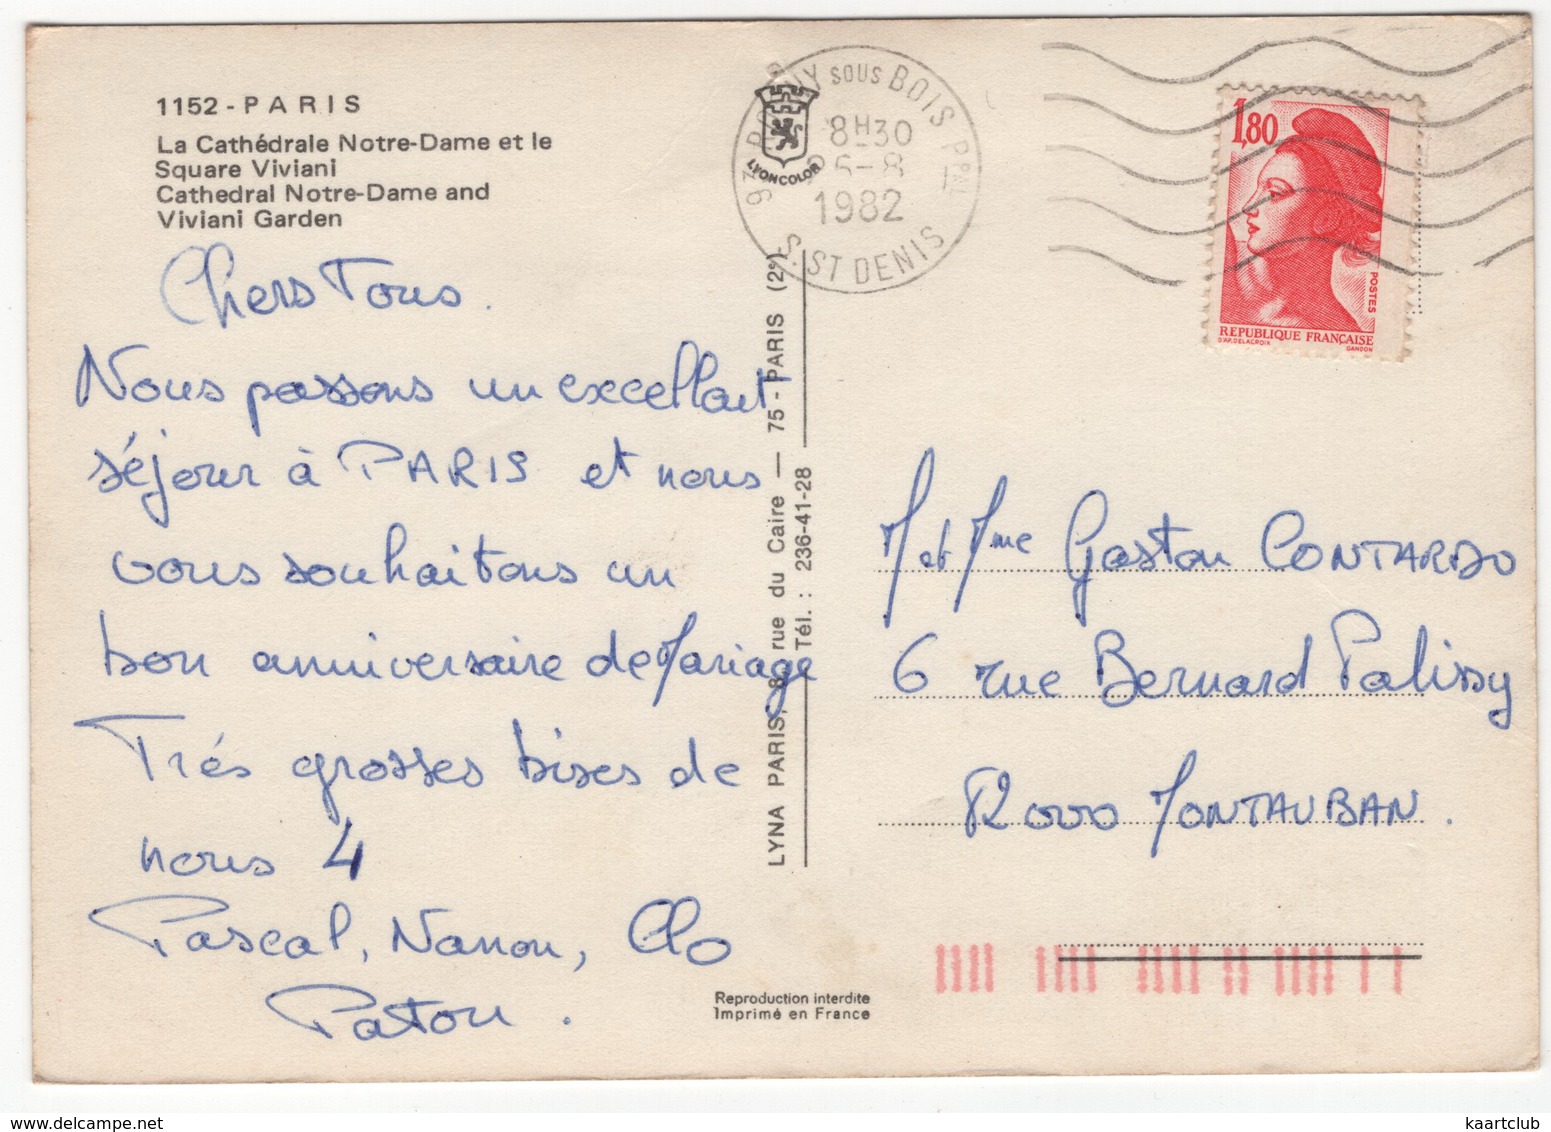 1152 - PARIS
La Cathédrale Notre-Dame et le
Square Viviani
Cathedral Notre-Dame and
Viviani Garden
Chers Tous.
Nous passons un excellent
séjour à PARIS et nous
vous souhaitons un
bon anniversaire de Mariage
Trés grosses bises de
nous 4
Pascal, Nanou, Clo
Patou.
LYNA PARIS, 8, rue du Caire — 75 - PARIS (2e)
Tél. : 236-41-28
LYONCOLOR
93 ROSNY SOUS BOIS Ppal
8H30
5-8
1982
S. ST DENIS
1,80
POSTES
REPUBLIQUE FRANÇAISE
D'AP. DELACROIX GANDON
M et Mme Gaston CONTARDO
6 rue Bernard Palissy
82000 MONTAUBAN.
Reproduction interdite
Imprimé en France
kaartclub